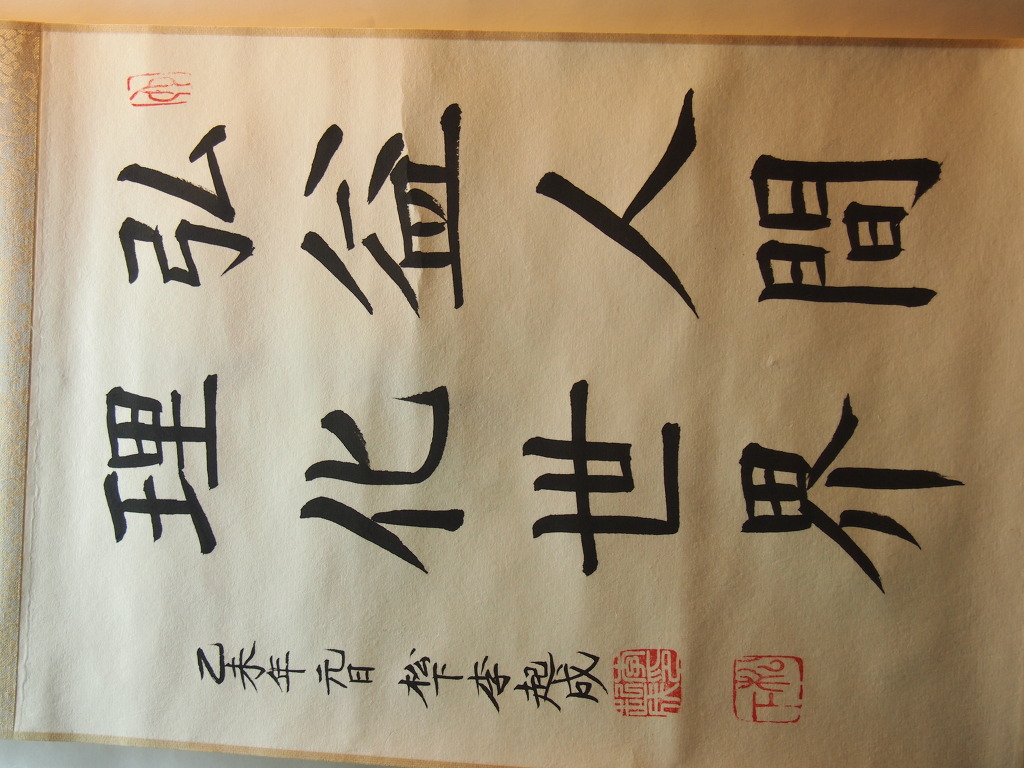 弘益人間
理化世界
乙未年 元日 松下 李起成
松下